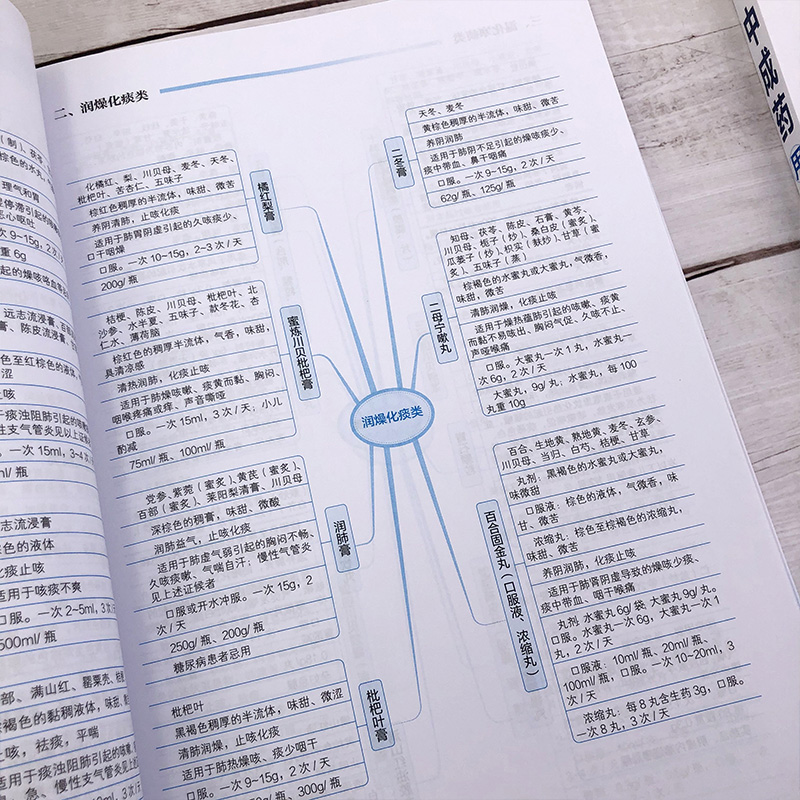 (制)、茯苓
棕色的水丸
理气和胃
湿停滞引起的
恶心呕吐
次 9~15g, 2 次
重 6g
起的燥咳咯血
远志流浸膏、
膏、陈皮流浸膏、
色至红棕色的液体、
涩
止咳
于痰浊阻肺引起的
性支气管炎见以上述证
一次 15ml, 3~4 次
瓶
志流浸膏
色的液体
化痰止咳
适用于咳痰不爽
一次 2~5ml, 3 次/天
500ml/瓶
部、满山红、罂粟壳、
棕褐色的黏稠液体,味甜、
止咳,祛痰,平喘
适用于痰浊阻肺引起的咳嗽、
急、慢性支气管炎见上述
二、润燥化痰类
化橘红、梨、川贝母、麦冬、天冬、
枇杷叶、苦杏仁、五味子
棕红色稠厚的半流体,味甜、微苦
养阴清肺,止咳化痰
适用于肺胃阴虚引起的久咳痰少、
口干咽燥
口服。一次 10~15g, 2~3 次/天
200g/瓶
橘红梨膏
桔梗、陈皮、川贝母、枇杷叶、北
沙参、水半夏、五味子、款冬花、杏
仁水、薄荷脑
棕红色的稠厚半流体,气香,味甜,
具清凉感
清热润肺,化痰止咳
适用于肺燥咳嗽、痰黄而黏、胸闷、
咽喉疼痛或痒、声音嘶哑
口服。一次 15ml, 3 次/天,小儿
酌减
75ml/瓶、100ml/瓶
蜜炼川贝枇杷膏
党参、紫菀(蜜炙)、黄芪(蜜炙)、
百部(蜜炙)、莱阳梨清膏、川贝母
深棕色的稠膏,味甜、微酸
润肺益气,止咳化痰
适用于肺虚气弱引起的胸闷不畅、
久咳痰嗽、气喘自汗;慢性气管炎
见上述证候者
口服或开水冲服。一次 15g, 2
次/天
250g/瓶、200g/瓶
糖尿病患者忌用
润肺膏
枇杷叶
黑褐色稠厚的半流体,味甜、微涩
清肺润燥,止咳化痰
适用于肺热燥咳、痰少咽干
口服。一次 9~15g, 2 次/天
瓶、300g/瓶
枇杷叶膏
润燥化痰类
天冬、麦冬
黄棕色稠厚的半流体,味甜、微苦
养阴润肺
适用于肺阴不足引起的燥咳痰少、
痰中带血、鼻干咽痛
口服。一次 9~15g, 2 次/天
62g/瓶、125g/瓶
二冬膏
知母、茯苓、陈皮、石膏、黄芩、
川贝母、栀子(炒)、桑白皮(蜜炙)、
瓜蒌子(炒)、枳实(麸炒)、甘草(蜜
炙)、五味子(蒸)
棕褐色的水蜜丸或大蜜丸,气微香,
味甜、微苦
清肺润燥,化痰止咳
适用于燥热蕴肺引起的咳嗽、痰黄
而黏不易咳出、胸闷气促、久咳不止、
声哑喉痛
口服。大蜜丸一次 1 丸,水蜜丸一
次 6g, 2 次/天
大蜜丸,9g/丸;水蜜丸,每 100
丸重 10g
二母宁嗽丸
百合、生地黄、熟地黄、麦冬、玄参、
川贝母、当归、白芍、桔梗、甘草
丸剂:黑褐色的水蜜丸或大蜜丸,
味微甜
口服液:棕色的液体,气微香,味
甘、微苦
浓缩丸:棕色至棕褐色的浓缩丸,
味甜、微苦
养阴润肺,化痰止咳
适用于肺肾阴虚导致的燥咳少痰、
痰中带血、咽干喉痛
丸剂 水蜜丸 6g/袋 大蜜丸 9g/丸。
口服。水蜜丸一次 6g,大蜜丸一次 1
丸,2 次/天
口服液:10ml/瓶、20ml/瓶、
100ml/瓶,口服。一次 10~20ml, 3
次/天
浓缩丸:每 8 丸含生药 3g,口服。
一次 8 丸,3 次/天
百合固金丸(口服液、浓缩丸)
中成药